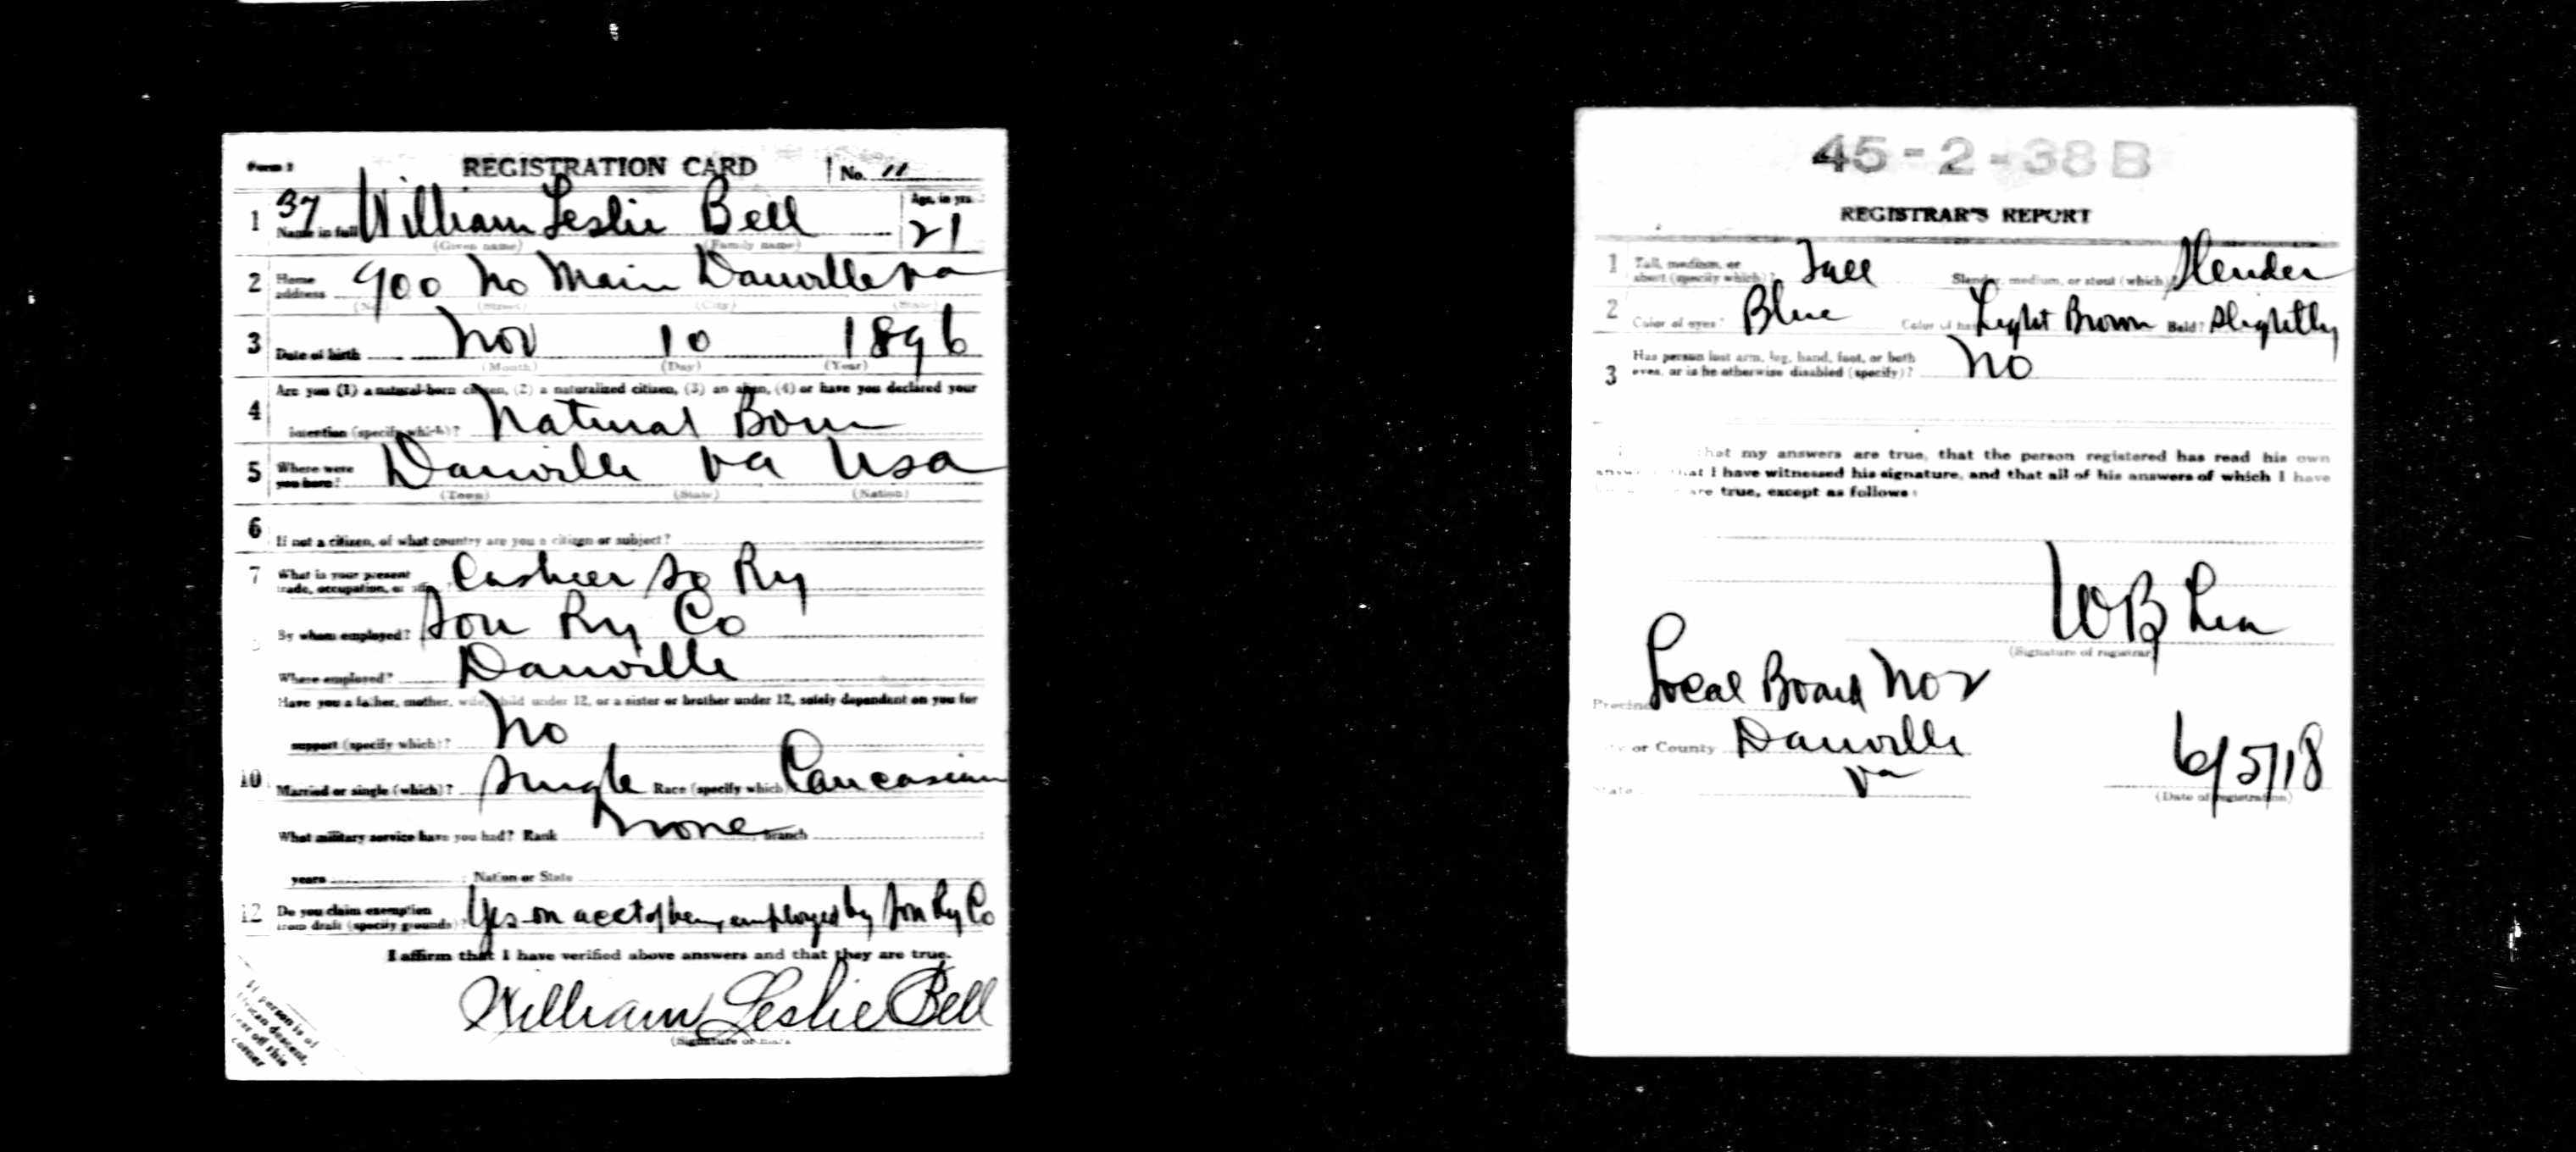 Form 1 REGISTRATION CARD No. 11
37 Age, in yrs.
1 Name in full William Leslie Bell 21
(Given name) (Family name)
2 Home address 900 No Main Danville Va
(No.) (Street) (City) (State)
3 Date of birth Nov 10 1896
(Month) (Day) (Year)
Are you (1) a natural-born citizen, (2) a naturalized citizen, (3) an alien, (4) or have you declared your
4 intention (specify which)? Natural Born
5 Where were you born? Danville Va USA
(Town) (State) (Nation)
6 If not a citizen, of what country are you a citizen or subject?
7 What is your present trade, occupation, or Cashier So Ry
By whom employed? Sou Ry Co
Where employed? Danville
Have you a father, mother, wife, child under 12, or a sister or brother under 12, solely dependent on you for
support (specify which)? No
10 Married or single (which)? Single Race (specify which) Caucasian
What military service have you had? Rank None branch
years Nation or State
12 Do you claim exemption from draft (specify grounds)? Yes on acct of being employed by Sou Ry Co
I affirm that I have verified above answers and that they are true.
William Leslie Bell
(Signature or mark
If person is of
African descent,
tear off this
corner
45-2-38 B
REGISTRAR'S REPORT
1 Tall, medium, or short (specify which)? Tall Slender, medium, or stout (which)? Slender
2 Color of eyes? Blue Color of hair Light Brown Bald? Slightly
3 Has person lost arm, leg, hand, foot, or both
eyes, or is he otherwise disabled (specify)? No
that my answers are true, that the person registered has read his own
that I have witnessed his signature, and that all of his answers of which I have
are true, except as follows:
WB Lea
(Signature of registrar)
Precinct Local Board No 2
or County Danville
State Va 6/5/18
(Date of registration)